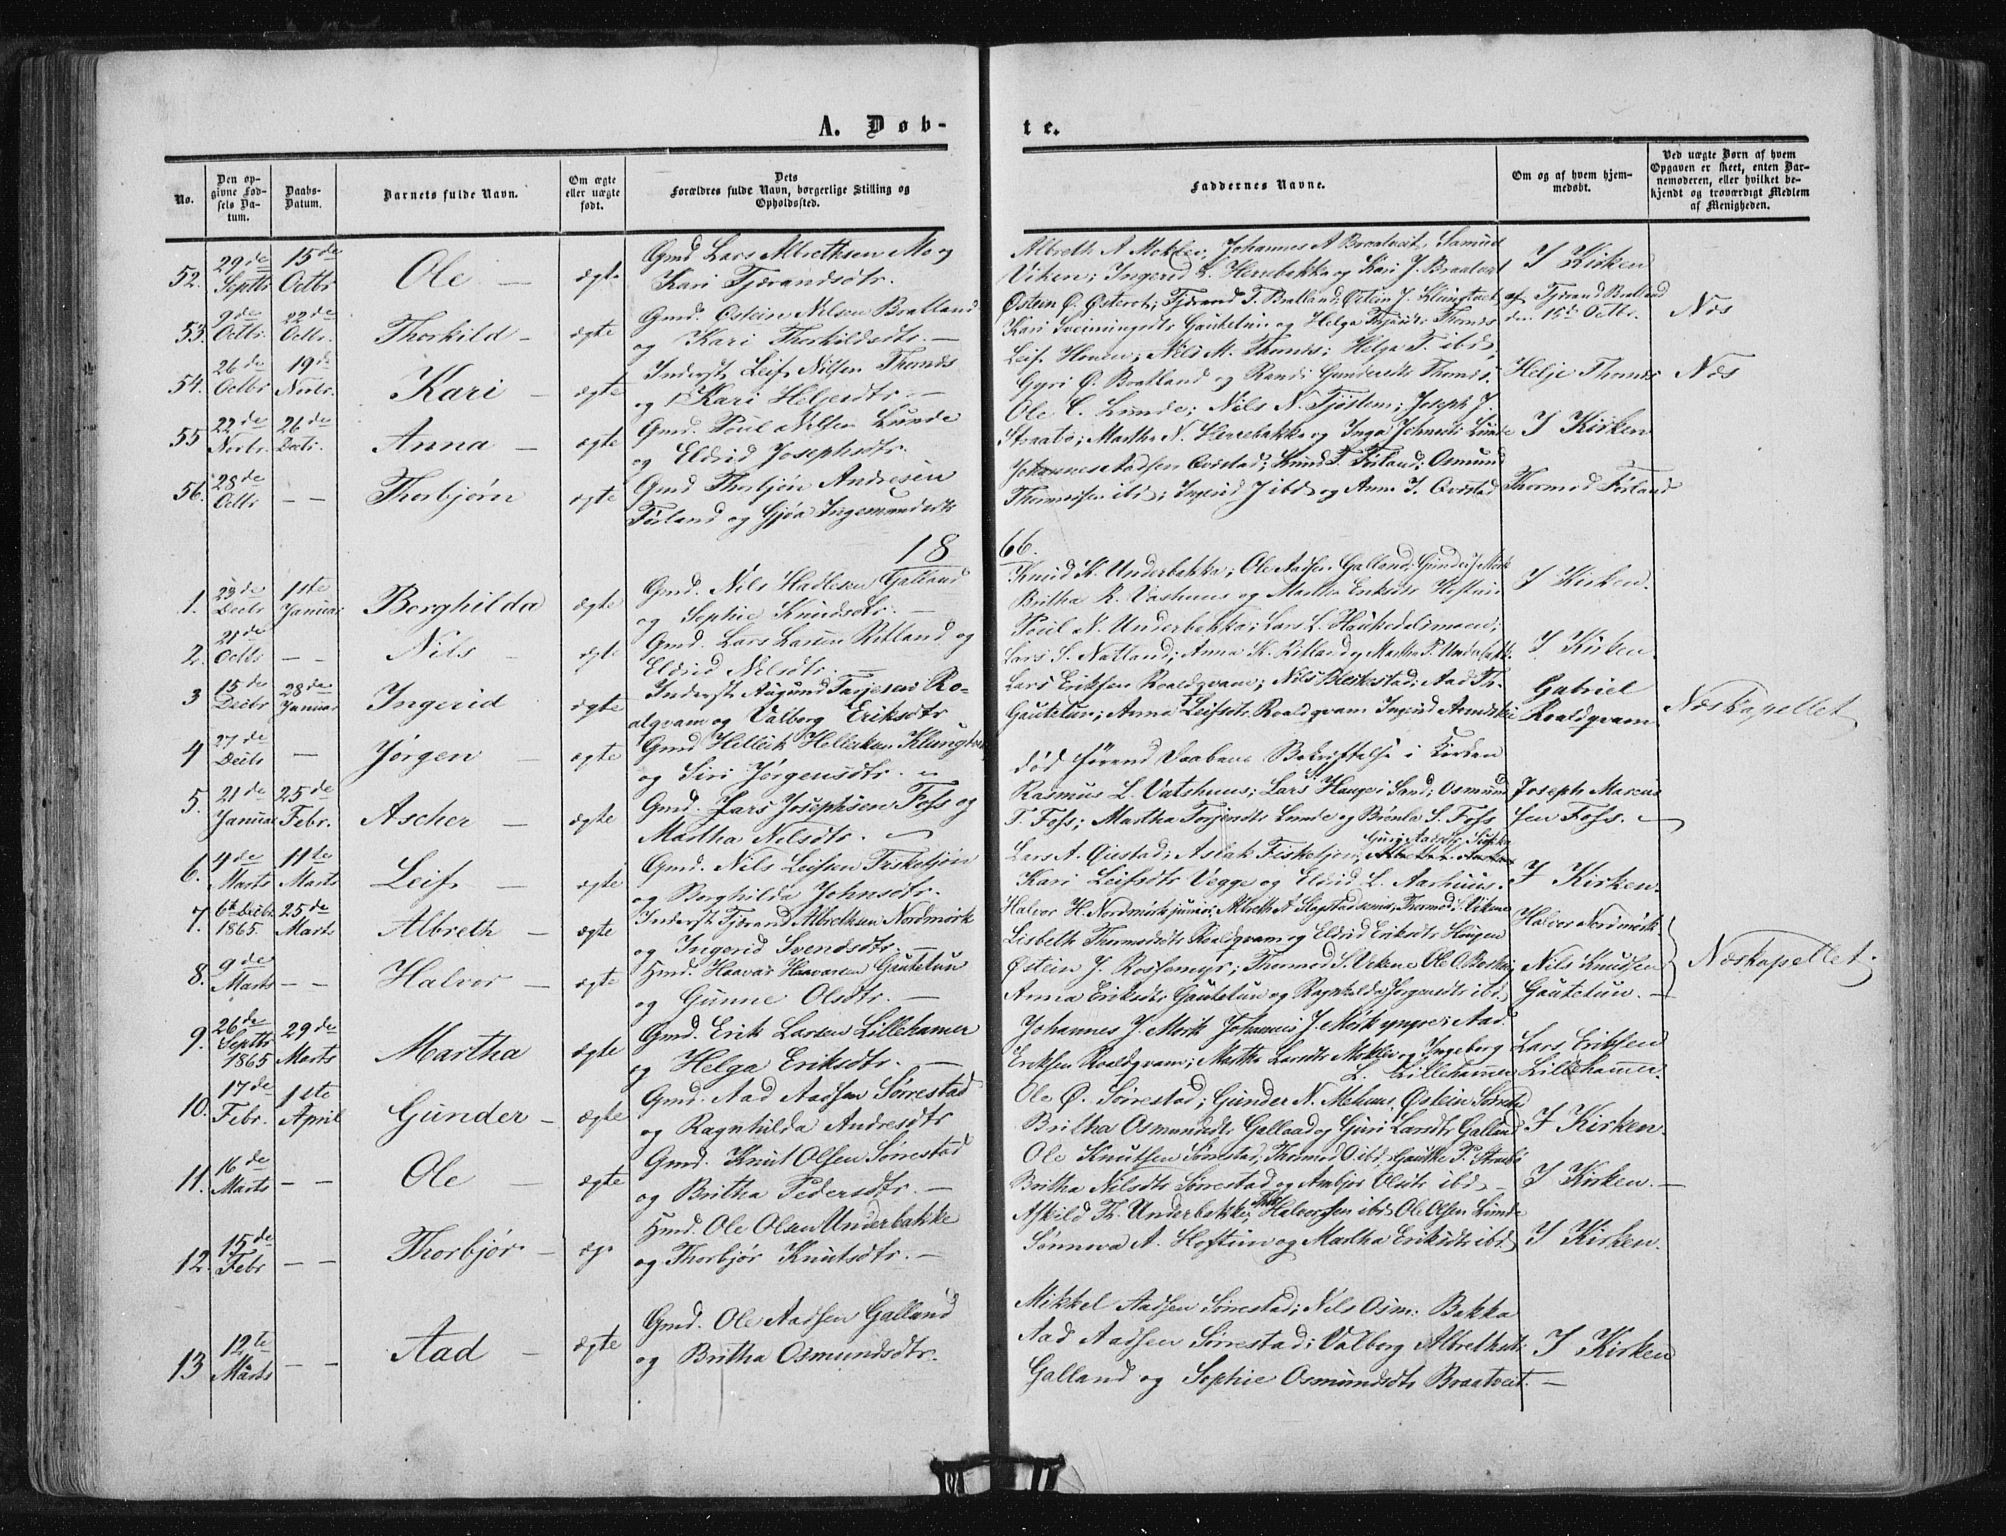 A. Døbte.
No.
Den opgivne Fødsels Datum.
Daabs-Datum.
Barnets fulde Navn.
Om ægte eller uægte født.
Dets Forældres fulde Navn, borgerlige Stilling og Opholdssted.
Faddernes Navne.
Om og af hvem hjemmedøbt.
Ved uægte Børn af hvem Opgaven er skeet, enten Barnemoderen, eller hvilket bekjendt og troværdigt Medlem af Menigheden.
52. 29de Septbr 15de Octbr Ole — ægte Gmd Lars Albrethsen Mo og
Kari Tjærandsdtr.
Albreth A Moklei; Johannes A Braatveit, Samuel
Viken; Ingerid L. Herrebakka og Kari J. Braatveit
I Kirken
53. 9de Octbr. 22de Octbr. Thorkild — ægte Gmd. Østein Nilsen Bratland
og Kari Thorkildsdtr. —
Østen Ø. Østerot; Tjærand T. Bratland; Østein J.
Kari Sveinungsdtr Gautetun og Helga Thoms
af Tjærand Bratland
den 15de Octbr.
Næs
54. 26de Octbr 19de Novbr. Kari — ægte Inderst, Leif Nilsen Thomås
og Kari Heljesdtr. —
Leif Honen; Nils M. Thomås; Helga T. ibd;
Gyri Ø. Bratland og Randi Gundersdtr Thomås.
Helje Thomås
Næs
55 22de Novbr. 26de Decbr. Anna — ægte Gmd. Poul Nilsen Lunde
og Eldrid Josephsdtr.
Ole C. Lunde; Nils N. Tjøstem; Joseph J.
Straabø; Martha N. Herrebakka og Inga Lunde
I Kirken
56. 28de Octbr — — Thorbjørn ægte Gmd Thorbjøn Andresen
Førland og Gjøa Ingemundsdtr
Johannes Aadsen Qvistad; Knud T. Førland; Osmund
Thormodsen ibd; Ingerid J ibd og Anna T. Qvistad
Thormod Førland
1866.
1. 23de Decbr 1ste Januar Borghilda ægte Gmd. Nils Hadlesen Galland
og Sophie Knudsdtr. —
Knud K. Underbakka; Ole Aadsen Galland; Gunder J. Mørk
Britha R. Vashuus og Martha Eriksdtr Hoftun
I Kirken.
2. 21de Octbr — — Nils — ægte Gmd. Lars Larsen Ritland og
Eldrid Nilsdtr. —
Poul N. Underbakka; Lars L. Haukedalsmoen;
Lars S. Natland; Anna K. Ritland og Martha P. Underbakk.
I Kirken.
3 15de Decbr 28de Januar Ingerid ægte Inderst. Aagund Tarjesen Ro-
alqvam og Valborg Eriksdtr
Lars Eriksen Roaldqvam; Nils Bleikestad; Aad Th.
Gautetun; Anna Leifsdtr. Roaldqvam
Gabriel
Roaldqvam
Næskapellet
4 27de Decbr — Jørgen — ægte Gmd Helleik Helleiksen
og Siri Jørgensdtr. —
død førend Daabens Bekræftelse i Kirken
5. 21de Januar 25de Febr. Ascher — ægte Gmd. Lars Josephsen Foss og
Martha Nilsdtr. —
Rasmus L. Vatshuus; Lars Hauge i Sand; Osmund
T. Foss; Martha Torjersdtr Lunde og Brønla S. Foss
Joseph Marcus
sen Foss. —
6. 4de Marts 11te Marts Leif — ægte Gmd. Nils Leifsen Fiskekjøn
og Borghilda Johnsdtr.
Lars A. Giestad; Aslak Fiskekjøn;
Kari Leifsdtr Vegge og Eldrid L. Aarhuus.
I Kirken.
7. 6te Decbr 1865. 25de Marts Albreth — ægte Inderst Tjærand Albrethsen Nordmørk
og Ingerid Svendsdtr. —
Halvor H. Nordmørk junior; Albreth A Slogstad senior; Thormod S. Vikene
Lisbeth Thormodsdtr Roaldqvam og Eldrid Eriksdtr Haugen
Halvor Nordmørk.
8. 9de Marts — — Halvor — ægte Hmd. Haavar Haavarsen Gautetun
og Gunne Olsdtr. —
Østein J. Rossemyr; Thormod S. Vikene Ole O.
Anna Eriksdtr Gautetun og Ragnhilda Jørgensdtr ibd
Nils Knudsen
Gautetun. —
Næskapellet
9. 26de Septbr 1865 29de Marts Martha ægte Gmd. Erik Larsen Lillehamer
og Helga Eriksdtr. —
Johannes J. Mørk Johannes J. Mørk yngre; Aad
Eriksen Roaldqvam; Martha Larsdtr Moklev og Ingeborg
L. Lillehammer
Lars Eriksen
Lillehammer.
10. 17de Febr. 1ste April Gunder — ægte Gmd. Aad Aadsen Sørrestad
og Ragnhilda Andresdtr
Ole Ø. Sørrestad; Gunder N. Mehuus, Østein Sørrestad
Britha Osmundsdtr Galland og Guri Larsdtr Galland
I Kirken.
11. 16de Marts — — Ole — ægte Gmd. Knut Olsen Sørrestad
og Britha Pedersdtr. —
Ole Knutsen Sørrestad, Thormod O ibd, Gauthe P. Straabø
Britha Nilsdtr Sørrestad og Anbjør Olsdtr ibd —
I Kirken. —
12. 15de Febr — — Thorbjør — æg. Hmd. Ole Olsen Underbakke
og Thorbjør Knutsdtr. —
Askild Th. Underbakke; Halvorsen ibd; Ole Olsen Lunde
Sønneva A. Hoftun og Martha Eriksdtr ibd
I Kirken.
13 12te Marts — — Aad — ægte Gmd. Ole Aadsen Galland
og Britha Osmundsdtr.
Mikkel Aadsen Sørrestad; Nils Osm: Bakka
Aad Aadsen Sørrestad; Valborg Albrethsdtr
Galland og Sophie Osmundsdtr Braatveit. —
I Kirken